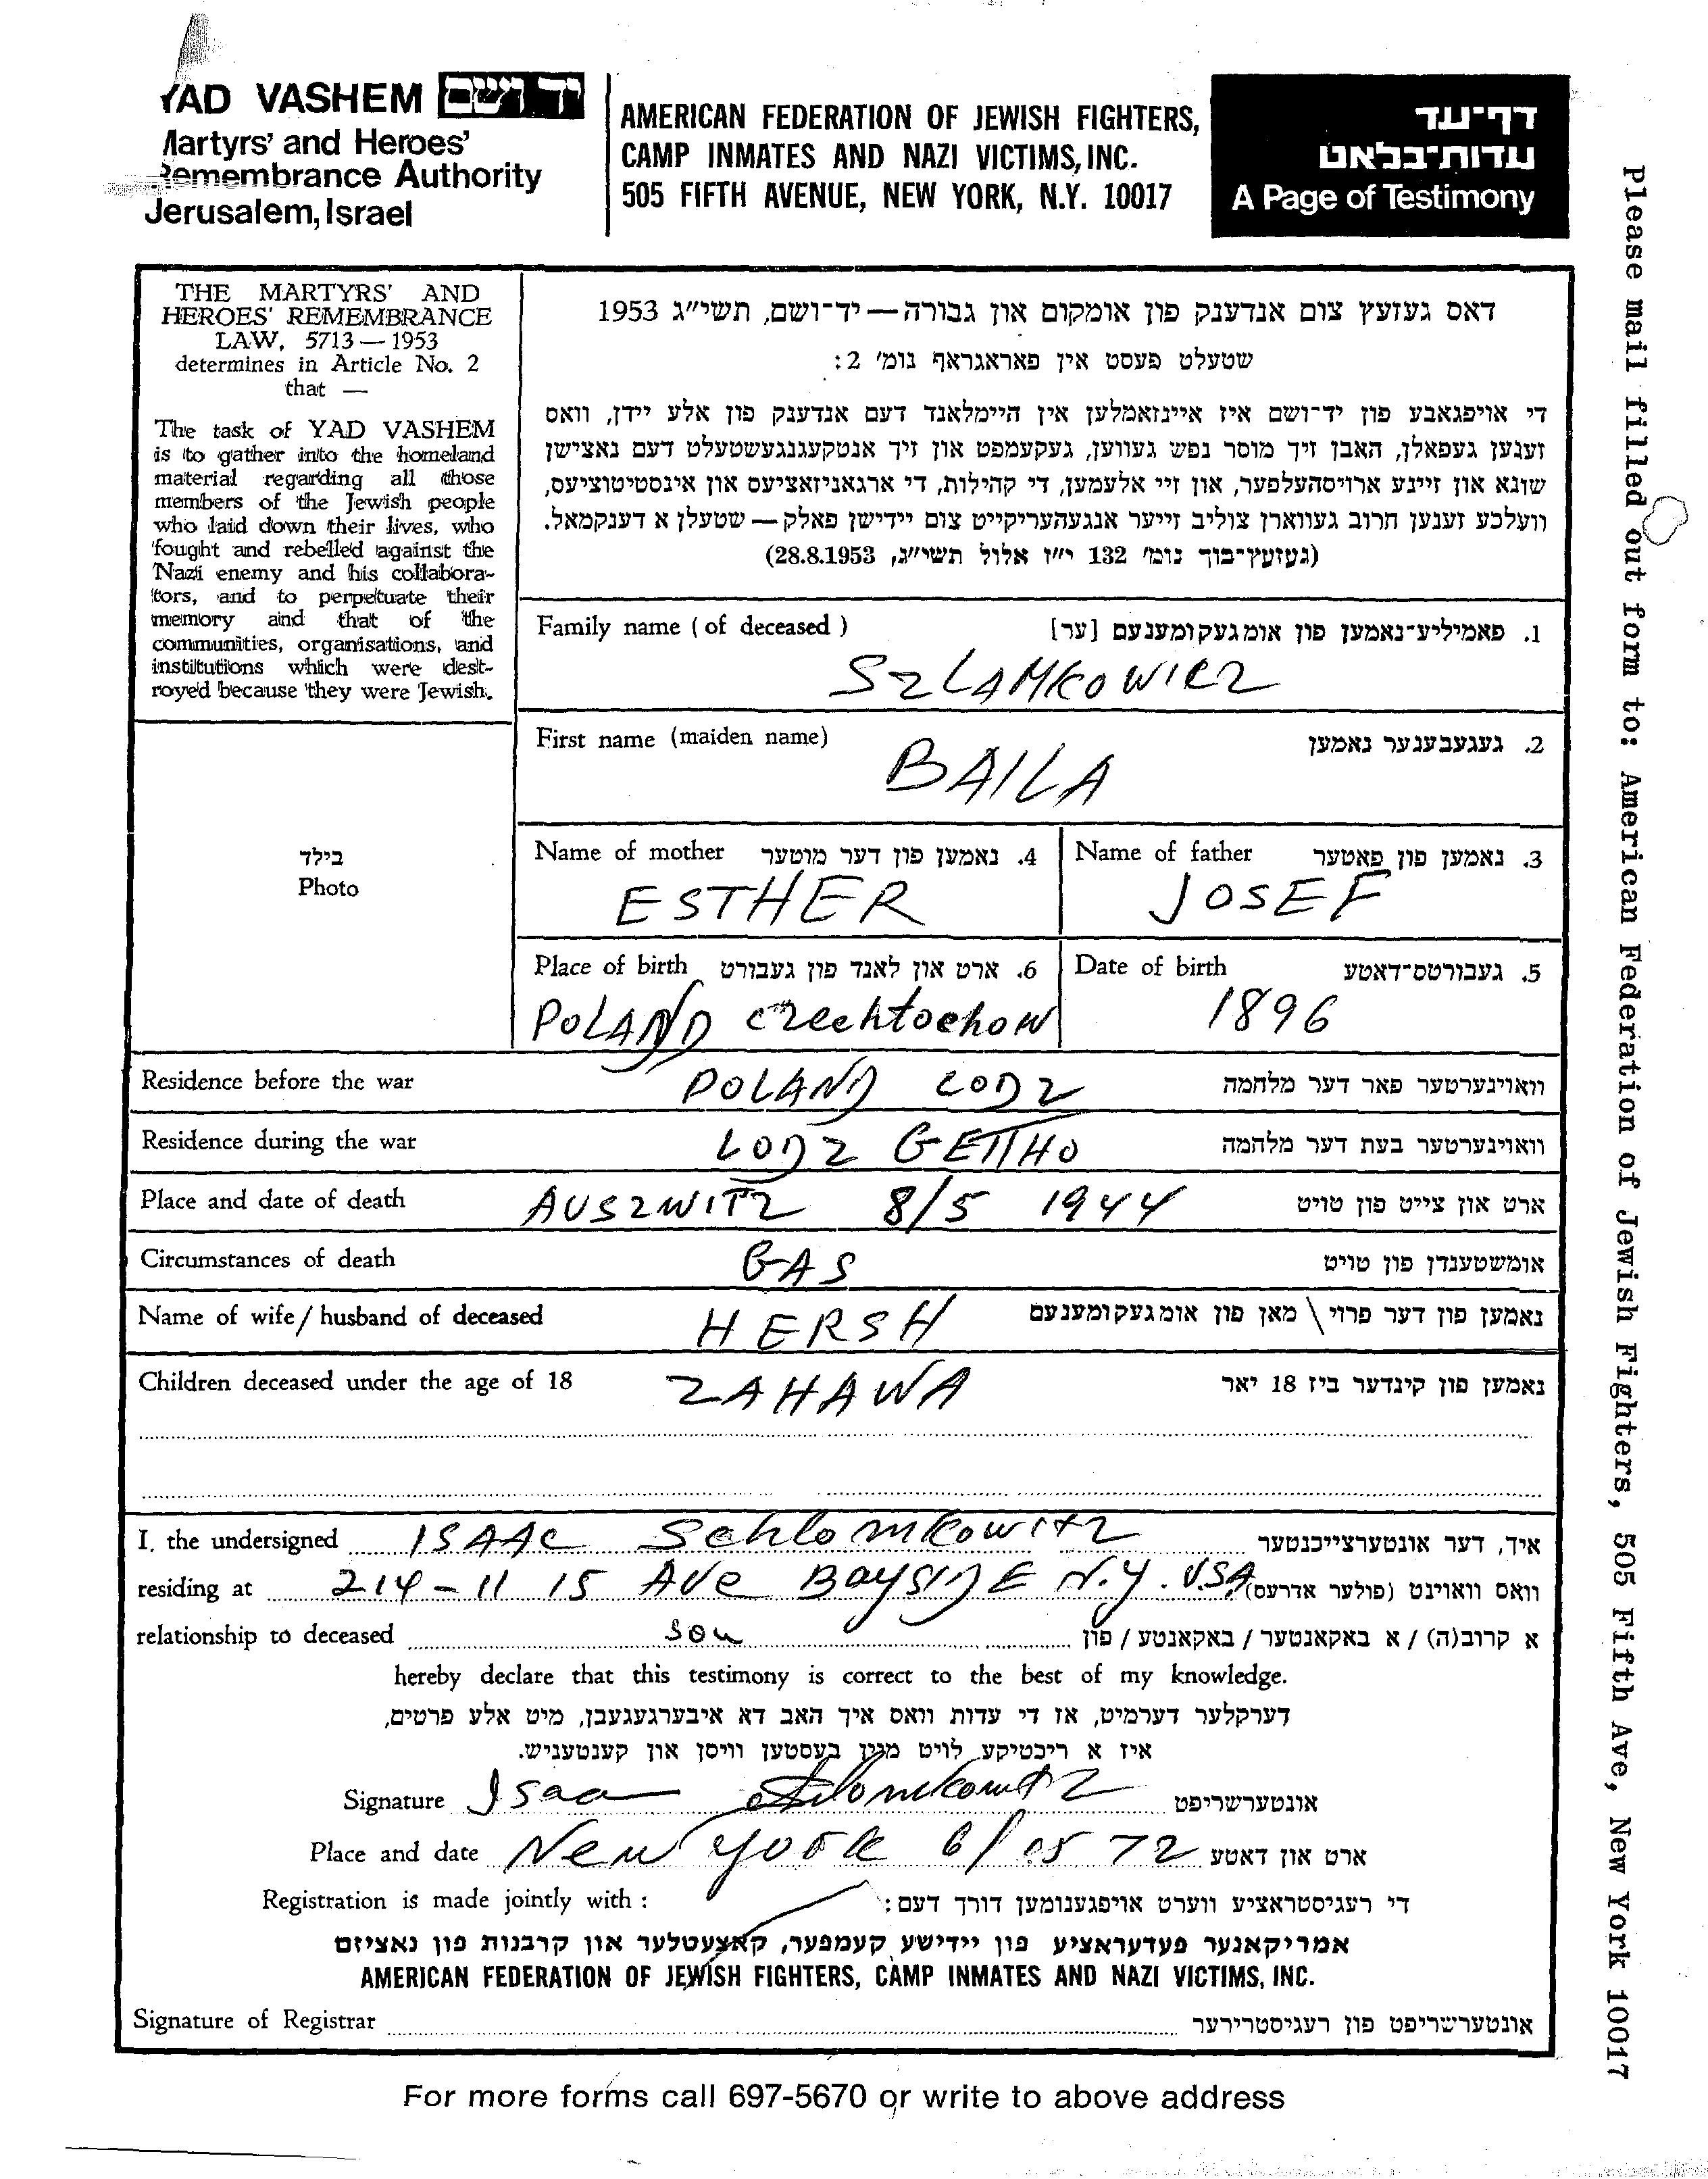 YAD VASHEM יד ושם
Martyrs' and Heroes'
Remembrance Authority
Jerusalem, Israel
AMERICAN FEDERATION OF JEWISH FIGHTERS,
CAMP INMATES AND NAZI VICTIMS, INC.
505 FIFTH AVENUE, NEW YORK, N.Y. 10017
דף־עד
עדות־בלאט
A Page of Testimony
THE MARTYRS' AND
HEROES' REMEMBRANCE
LAW, 5713 — 1953
determines in Article No. 2
that —
The task of YAD VASHEM
is to gather into the homeland
material regarding all those
members of the Jewish people
who laid down their lives, who
fought and rebelled against the
Nazi enemy and his collabora-
tors, and to perpetuate their
memory and that of the
communities, organisations, and
institutions which were dest-
royed because they were Jewish.
דאס געזעץ צום אנדענק פון אומקום און גבורה — יד־ושם, תשי״ג 1953
שטעלט פעסט אין פאראגראף נומ׳ 2:
די אויפגאבע פון יד־ושם איז איינזאמלען אין היימלאנד דעם אנדענק פון אלע יידן, וואס
זענען געפאלן, האבן זיך מוסר נפש געווען, געקעמפט און זיך אנטקעגנגעשטעלט דעם נאצישן
שונא און זיינע ארויסהעלפער, און זיי אלעמען, די קהילות, די ארגאניזאציעס און אינסטיטוציעס,
וועלכע זענען חרוב געווארן צוליב זייער אנגעהעריקייט צום יידישן פאלק — שטעלן א דענקמאל.
(געזעץ־בוך נומ׳ 132 י״ז אלול תשי״ג, 28.8.1953)
Family name (of deceased) 1. פאמיליע־נאמען פון אומגעקומענעם [ער]
SZLAMKOWICZ
First name (maiden name) 2. געגעבענער נאמען
BAILA
בילד
Photo
Name of mother 4. נאמען פון דער מוטער
ESTHER
Name of father 3. נאמען פון פאטער
JOSEF
Place of birth 6. ארט און לאנד פון געבורט
POLAND Czechtochow
Date of birth 5. געבורטס־דאטע
1896
Residence before the war POLAND LODZ וואוינערטער פאר דער מלחמה
Residence during the war LODZ GETTHO וואוינערטער בעת דער מלחמה
Place and date of death AUSZWITZ 8/5 1944 ארט און צייט פון טויט
Circumstances of death GAS אומשטענדן פון טויט
Name of wife / husband of deceased HERSH נאמען פון דער פרוי \ מאן פון אומגעקומענעם
Children deceased under the age of 18 ZAHAWA נאמען פון קינדער ביז 18 יאר
I, the undersigned ISAAC Schlomkowitz איך, דער אונטערצייכנטער
residing at 214-11 15 AVe BAYSIDE N.Y. USA וואס וואוינט (פולער אדרעס)
relationship to deceased son א קרוב(ה) / א באקאנטער / באקאנטע / פון
hereby declare that this testimony is correct to the best of my knowledge.
דערקלער דערמיט, אז די עדות וואס איך האב דא איבערגעגעבן, מיט אלע פרטים,
איז א ריכטיקע לויט מיין בעסטען וויסן און קענטעניש.
Signature Isaac Schlomkowitz אונטערשריפט
Place and date New York 6/05 72 ארט און דאטע
Registration is made jointly with : די רעגיסטראציע ווערט אויפגענומען דורך דעם:
אמריקאנער פעדעראציע פון יידישע קעמפער, קאצעטלער און קרבנות פון נאציזם
AMERICAN FEDERATION OF JEWISH FIGHTERS, CAMP INMATES AND NAZI VICTIMS, INC.
Signature of Registrar אונטערשריפט פון רעגיסטרירער
For more forms call 697-5670 or write to above address
Please mail filled out form to: American Federation of Jewish Fighters, 505 Fifth Ave, New York 10017